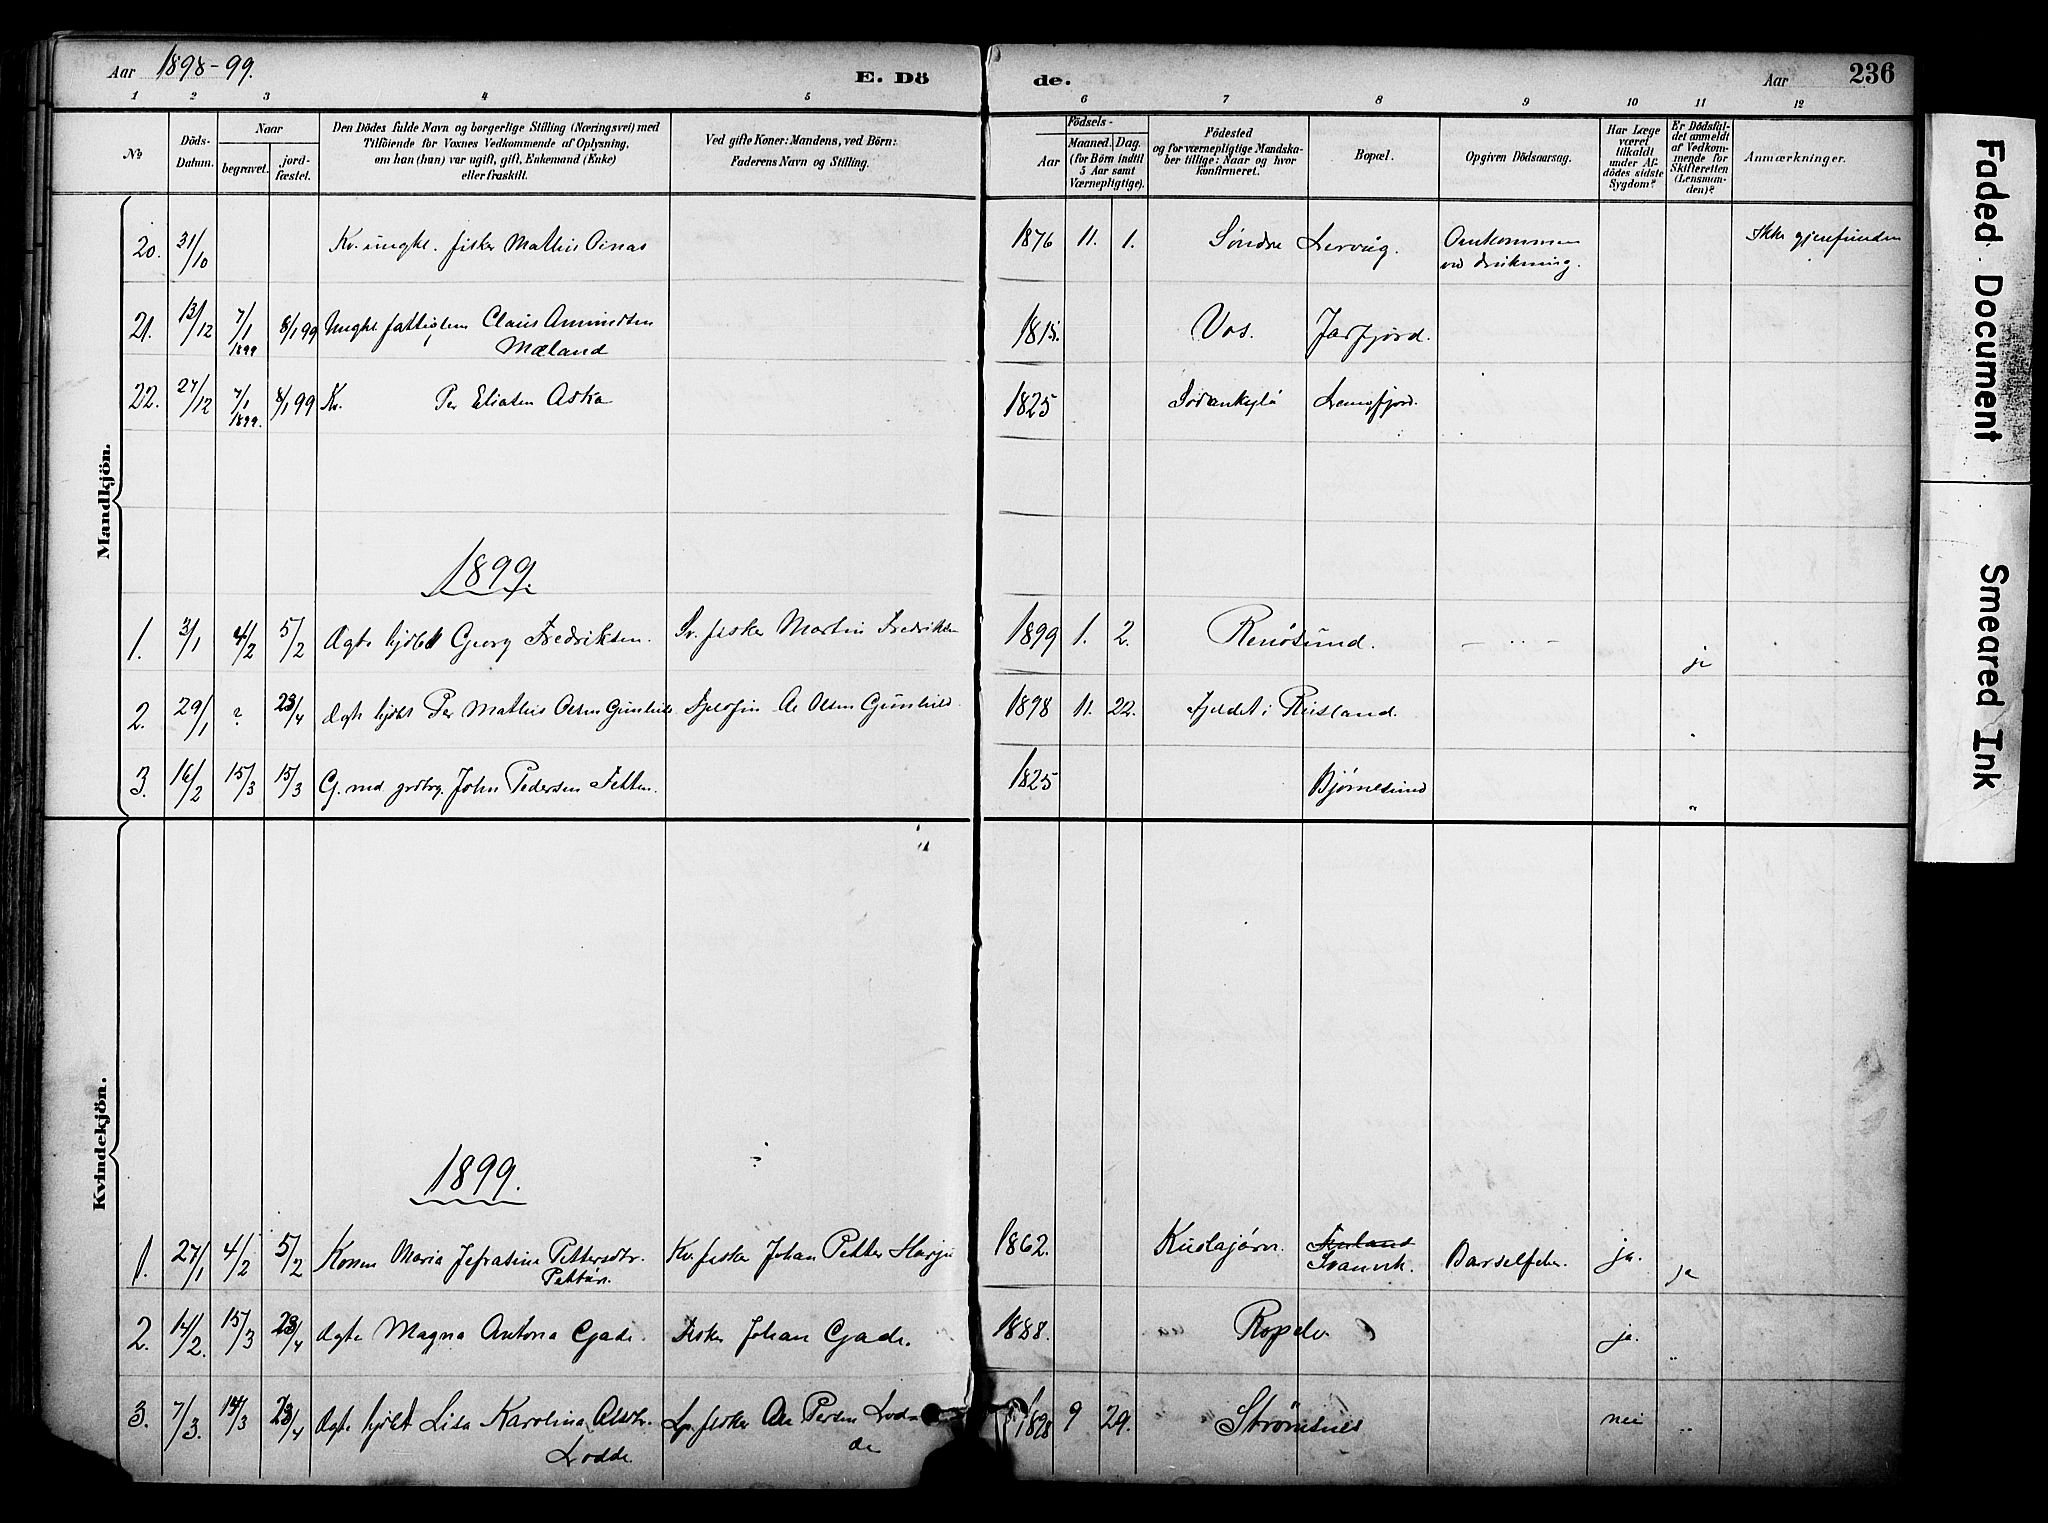 Aar 1898-99.
E. Dö
de.
Aar
236
1 2 3 4 5 6 7 8 9 10 11 12
No
Döds-
Datum.
Naar
begravet.
jord-
fæstet.
Den Dödes fulde Navn og borgerlige Stilling (Næringsvei) med
Tilföiende for Voxnes Vedkommende af Oplysning,
om han (hun) var ugift, gift, Enkemand (Enke)
eller fraskilt.
Ved gifte Koner: Mandens, ved Börn:
Faderens Navn og Stilling.
Födsels-
Aar
Maaned. Dag.
(for Börn indtil
5 Aar samt
Værnepligtige).
Födested
og for værnepligtige Mandska-
ber tillige: Naar og hvor
konfirmeret.
Bopæl.
Opgiven Dödsaarsag.
Har Læge
været
tilkaldt
under Af-
dödes sidste
Sygdom?
Er Dödsfal-
det anmeldt
af Vedkom-
mende for
Skifteretten
(Lensman-
den)?
Anmærkninger.
Mandkjön.
20. 31/10 Kv. ungkl. fisker Mathis Oinas 1876 11. 1. Søndre Lervåg. Omkommen Ikke gjenfunden
ved drukning.
21. 13/12 7/1 1899 8/1 99 Ungkl fattiglem Claus Amundsen 1815. Vos. Jarfjord.
Mæland
22. 27/12 7/1 1899. 8/1 99 Kv. Per Eliasen Aska 1825 Sodankylä
1899.
1. 3/1 4/2 5/2 Ægte hjdbt Georg Fredriksen. Sv. fisker Martin Fredriksen 1899 1. 2. Renøsund. - ... - ja
2. 29/1 ? 23/4 Ægte hjdbt Per Mathis Olsen 1898 11. 22. Fjeldet i Rusland. "
3. 16/2 15/3 15/3 G. md grdbrg. John Pedersen 1825 Bjørnesund "
Kvindekjön.
1899.
1. 27/1 4/2 5/2 Konen Maria Jefrasine Pettersdtr. Kv. fisker Johan Petter Harju 1862. Kuolajärvi. Svanvik. Barselfeber. ja. ja
2. 14/2. 15/3 23/4 Ægte Magna Antona Gade. Fisker Johan Gade. 1888. Ropelv ja. "
3. 7/3. 14/3 23/4 Ægte hjdbt Lisa Karolina Olsdtr. Lp. fisker Ole Persen Lod- 1898 9 29. Strömsnes nei "
Lodde. de
Faded Document
Smeared Ink